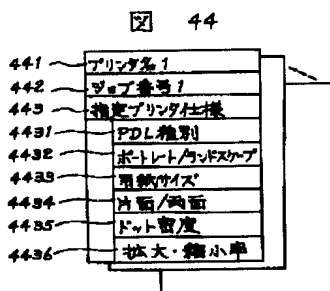 図 44
441 プリンタ名1
442 ジョブ番号1
443 指定プリンタ仕様
4431 PDL種別
4432 ポートレート/ランドスケープ
4433 用紙サイズ
4434 片面/両面
4435 ドット密度
4436 拡大・縮小率